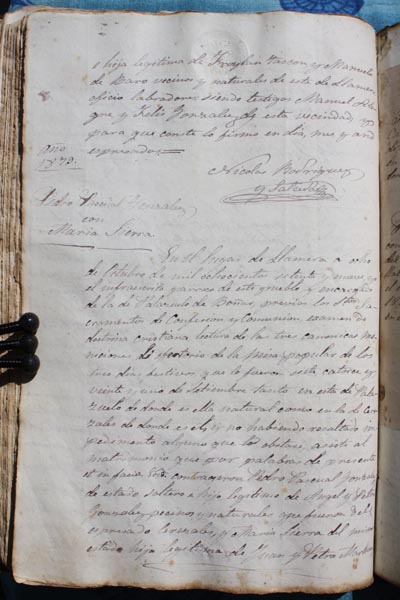 é hija legitima de Froylan Tascon y Manuela
de Baro vecinos y naturales de este de Llamera
oficio labradores siendo testigos Manuel
que, y Felis Gonzalez de esta vecindad, y
para que conste lo firmo en dia, mes y año
espresados.
Nicolas Rodriguez
y
Año
1879.
Pedro Pascual Gonzalez
con
Maria Sierra.
En el lugar de Llamera a ocho
de Octubre de mil ochocientos setenta y nueve, yo
el infrascrito parroco de este pueblo y encargado
de la de Palazuelo de Boñar, previos los Stos. Sa-
cramentos de Confesion y Comunion, examen de
doctrina cristiana lectura de las tres canonicas mo-
niciones al ofertorio de la misa popular de los
tres dias festivos que lo fueron siete catorce y
veinte y uno de Setiembre tanto en este de Pala-
zuelo de donde es ella natural como en la de Ce-
rezales de donde es el, y no habiendo resultado im-
pedimento alguno que les obstase, asisti al
matrimonio que por palabras de presente
et in facie Ecc. contrageron Pedro Pascual Gonzalez
de estado soltero é hijo legitimo de Angel y
Gonzalez, vecinos y naturales que fueron del
espresado Cerezales, y Maria Sierra del mismo
estado hija legitima de Juan y Petra Martinez